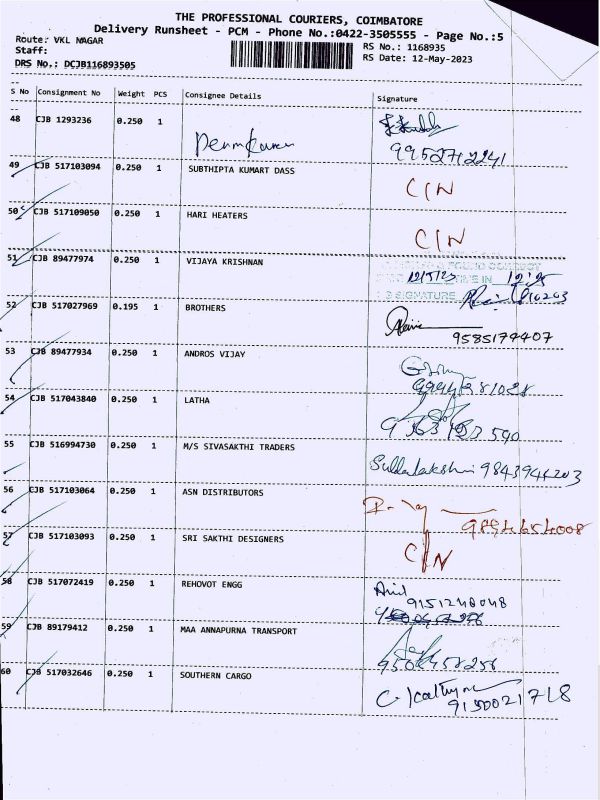 THE PROFESSIONAL COURIERS, COIMBATORE
Delivery Runsheet - PCM - Phone No.:0422-3505555 - Page No.:5
Route: VKL NAGAR
RS No.: 1168935
Staff:
RS Date: 12-May-2023
DRS No.: DCJB116893505
S No Consignment No Weight PCS Consignee Details Signature
48 CJB 1293236 0.250 1
9952712241
49 CJB 517103094 0.250 1 SUBTHIPTA KUMART DASS
C/N
50 CJB 517109050 0.250 1 HARI HEATERS
C/N
51 CJB 89477974 0.250 1 VIJAYA KRISHNAN
12/5/23 TIME IN 12:25
SIGNATURE
52 CJB 517027969 0.195 1 BROTHERS
9585174407
53 CJB 89477934 0.250 1 ANDROS VIJAY
54 CJB 517043840 0.250 1 LATHA
55 CJB 516994730 0.250 1 M/S SIVASAKTHI TRADERS
9843944203
56 CJB 517103064 0.250 1 ASN DISTRIBUTORS
9894654008
57 CJB 517103093 0.250 1 SRI SAKTHI DESIGNERS
C/N
58 CJB 517072419 0.250 1 REHOVOT ENGG
9151240048
59 CJB 89179412 0.250 1 MAA ANNAPURNA TRANSPORT
60 CJB 517032646 0.250 1 SOUTHERN CARGO
9150021718